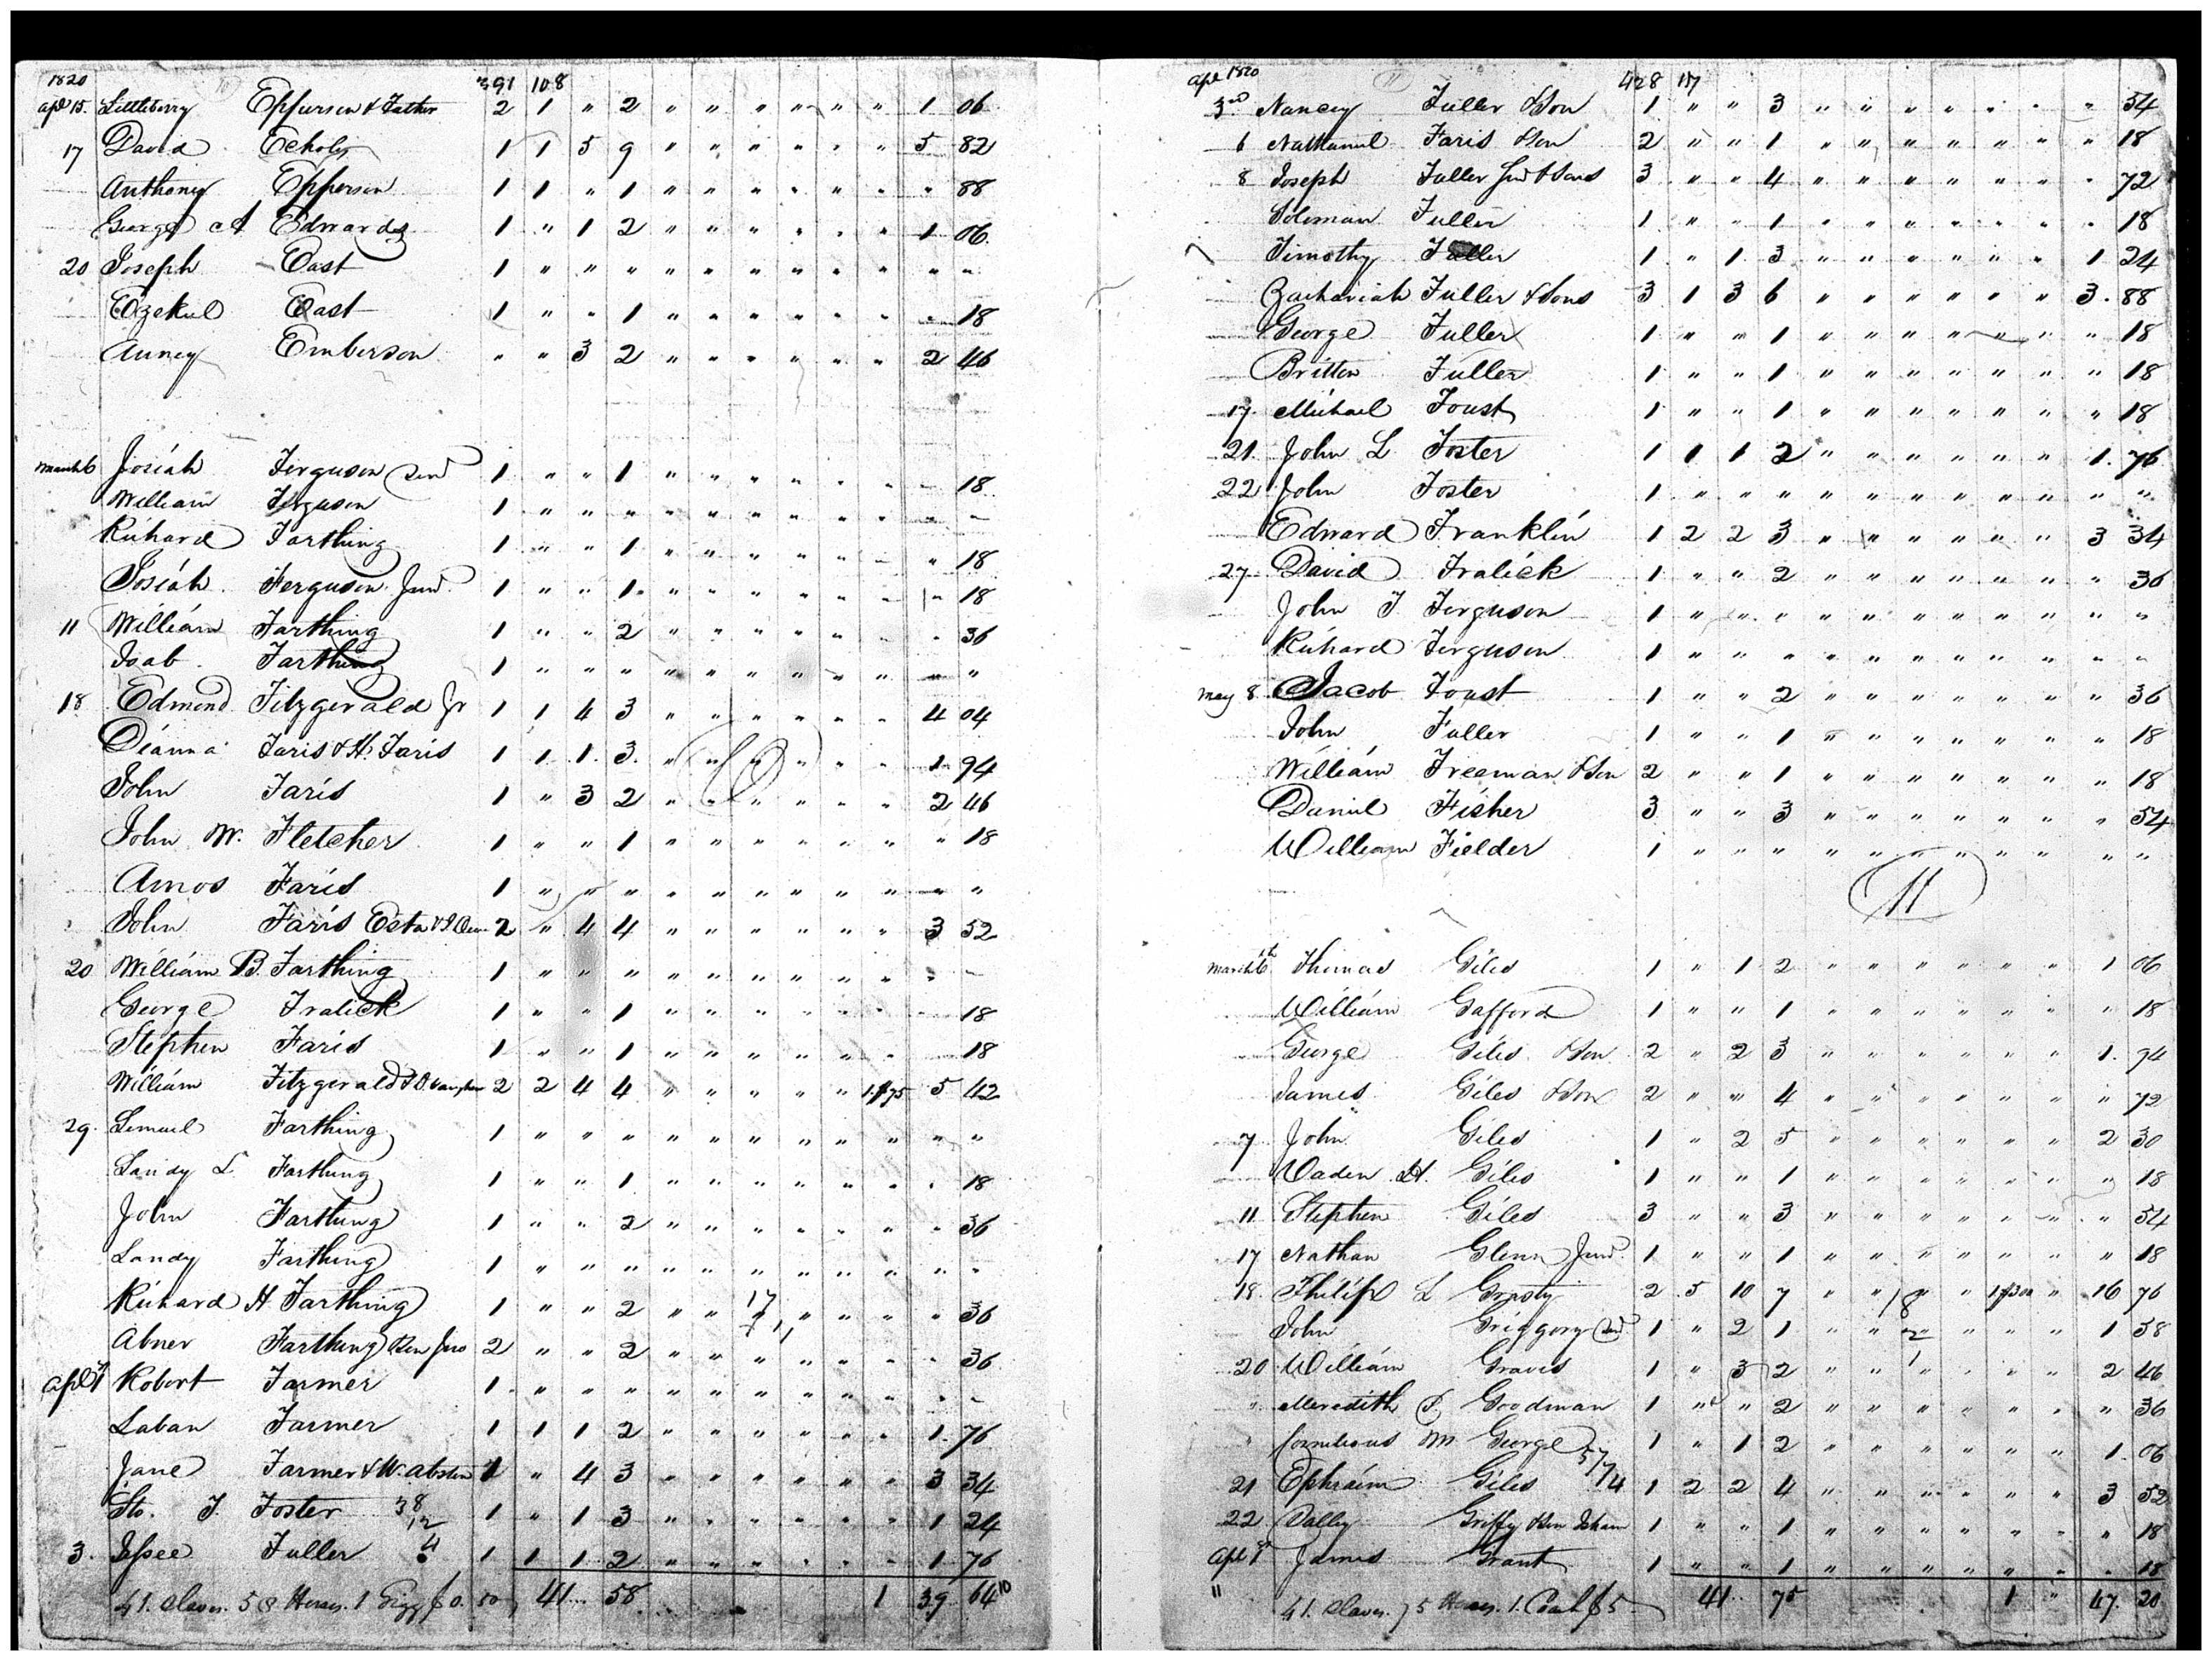 1820 391 108
Apl 15. Littleberry Epperson & Father 2 1 " 2 " " " " " " 1 06
17 David Echols 1 1 5 9 " " " " " " 5 82
Anthony Epperson 1 1 " 1 " " " " " " " 88
George A Edwards 1 " 1 2 " " " " " " 1 06
20 Joseph East 1 " " " " " " " " " " "
Ezekiel East 1 " " 1 " " " " " " " 18
Anney Emberson " " 3 2 " " " " " " 2 46
March 6 Josiah Ferguson Senr 1 " " 1 " " " " " " " 18
William Ferguson 1 " " " " " " " " " " "
Richard Farthing 1 " " 1 " " " " " " " 18
Josiah Ferguson Junr 1 " " 1 " " " " " " " 18
11 William Farthing 1 " " 2 " " " " " " " 36
Farthing 1 " " " " " " " " " " "
18 Edmond Fitzgerald Jr 1 1 4 3 " " " " " " 4 04
Dianna Faris & H. Faris 1 1 1 3 " " " " " " 1 94
John Faris 1 " 3 2 " " " " " " 2 46
10
John W. Fletcher 1 " " 1 " " " " " " " 18
Amos Faris 1 " " " " " " " " " " "
John Faris Esta 2 " 4 4 " " " " " " 3 52
20 William B. Farthing 1 " " " " " " " " " " "
George Fralick 1 " " 1 " " " " " " " 18
Stephen Faris 1 " " 1 " " " " " " " 18
William Fitzgerald 2 2 4 4 " " " " " 1 $75 5 42
29. Lemuel Farthing 1 " " " " " " " " " " "
Landy L Farthing 1 " " 1 " " " " " " " 18
John Farthing 1 " " 2 " " " " " " " 36
Landy Farthing 1 " " " " " " " " " " "
Richard H Farthing 1 " " 2 " " 17 " " " " 36
Abner Farthing Son Jno 2 " " 2 " " " " " " " 36
Apl 1 Robert Farmer 1 " " " " " " " " " " "
Laban Farmer 1 1 1 2 " " " " " " 1 76
Jane Farmer & W. Absten 1 " 4 3 " " " " " " 3 34
Foster 38 1 " 1 3 " " " " " " 1 24
12
3. Jessee Fuller 4 1 1 1 2 " " " " " " 1 76
41. Slaves. 58 Horses. 1 Gigg $0. 50 41 58 1 39 64 10
Apl 1820 11 428 117
3rd Nancy Fuller & Son 1 " " 3 " " " " " " " 54
6 Nathaniel Faris & Son 2 " " 1 " " " " " " " 18
8 Joseph Fuller Junr & Sons 3 " " 4 " " " " " " " 72
Soloman Fuller 1 " " 1 " " " " " " " 18
Timothy Fuller 1 " 1 3 " " " " " " 1 24
Zachariah Fuller & Sons 3 1 3 6 " " " " " " 3. 88
George Fuller 1 " " 1 " " " " " " " 18
Britton Fuller 1 " " 1 " " " " " " " 18
17 Michael Foust 1 " " 1 " " " " " " " 18
21 John L Foster 1 1 1 2 " " " " " " 1. 76
22 John Foster 1 " " " " " " " " " " "
Edward Franklin 1 2 2 3 " " " " " " 3 34
27 David Fralick 1 " " 2 " " " " " " " 36
John F Ferguson 1 " " " " " " " " " " "
Richard Ferguson 1 " " " " " " " " " " "
May 8 Jacob Foust 1 " " 2 " " " " " " " 36
John Fuller 1 " " 1 " " " " " " " 18
William Freeman & Son 2 " " 1 " " " " " " " 18
Daniel Fisher 3 " " 3 " " " " " " " 54
William Fielder 1 " " " " " " " " " " "
11
March 6th Thomas Giles 1 " 1 2 " " " " " " 1 06
William Gafford 1 " " 1 " " " " " " " 18
George Giles & Son 2 " 2 3 " " " " " " 1. 94
James Giles & Son 2 " " 4 " " " " " " " 72
7 John Giles 1 " 2 5 " " " " " " 2 30
Vaden H. Giles 1 " " 1 " " " " " " " 18
11 Stephen Giles 3 " " 3 " " " " " " " 54
17 Nathan Glenn Junr 1 " " 1 " " " " " " " 18
18. Philip L Grasty 2 5 10 7 " " " " 1 $300 " 16 76
18
John Griggory Snr 1 " 2 1 " " 2 " " " 1 58
20 William Graves 1 " 3 2 " " 1 " " " 2 46
" Meredith P. Goodman 1 " " 2 " " " " " " " 36
" Cornelious M George 1 " 1 2 " " " " " " 1. 06
57
21 Ephraim Giles 74 1 2 2 4 " " " " " " 3 52
22 Griffy & Son Isham 1 " " 1 " " " " " " " 18
Apl 1st James Grant 1 " " 1 " " " " " " " 18
" 41. Slaves. 75 Horses. 1. Coach $5 41. 75 1 " 47. 20